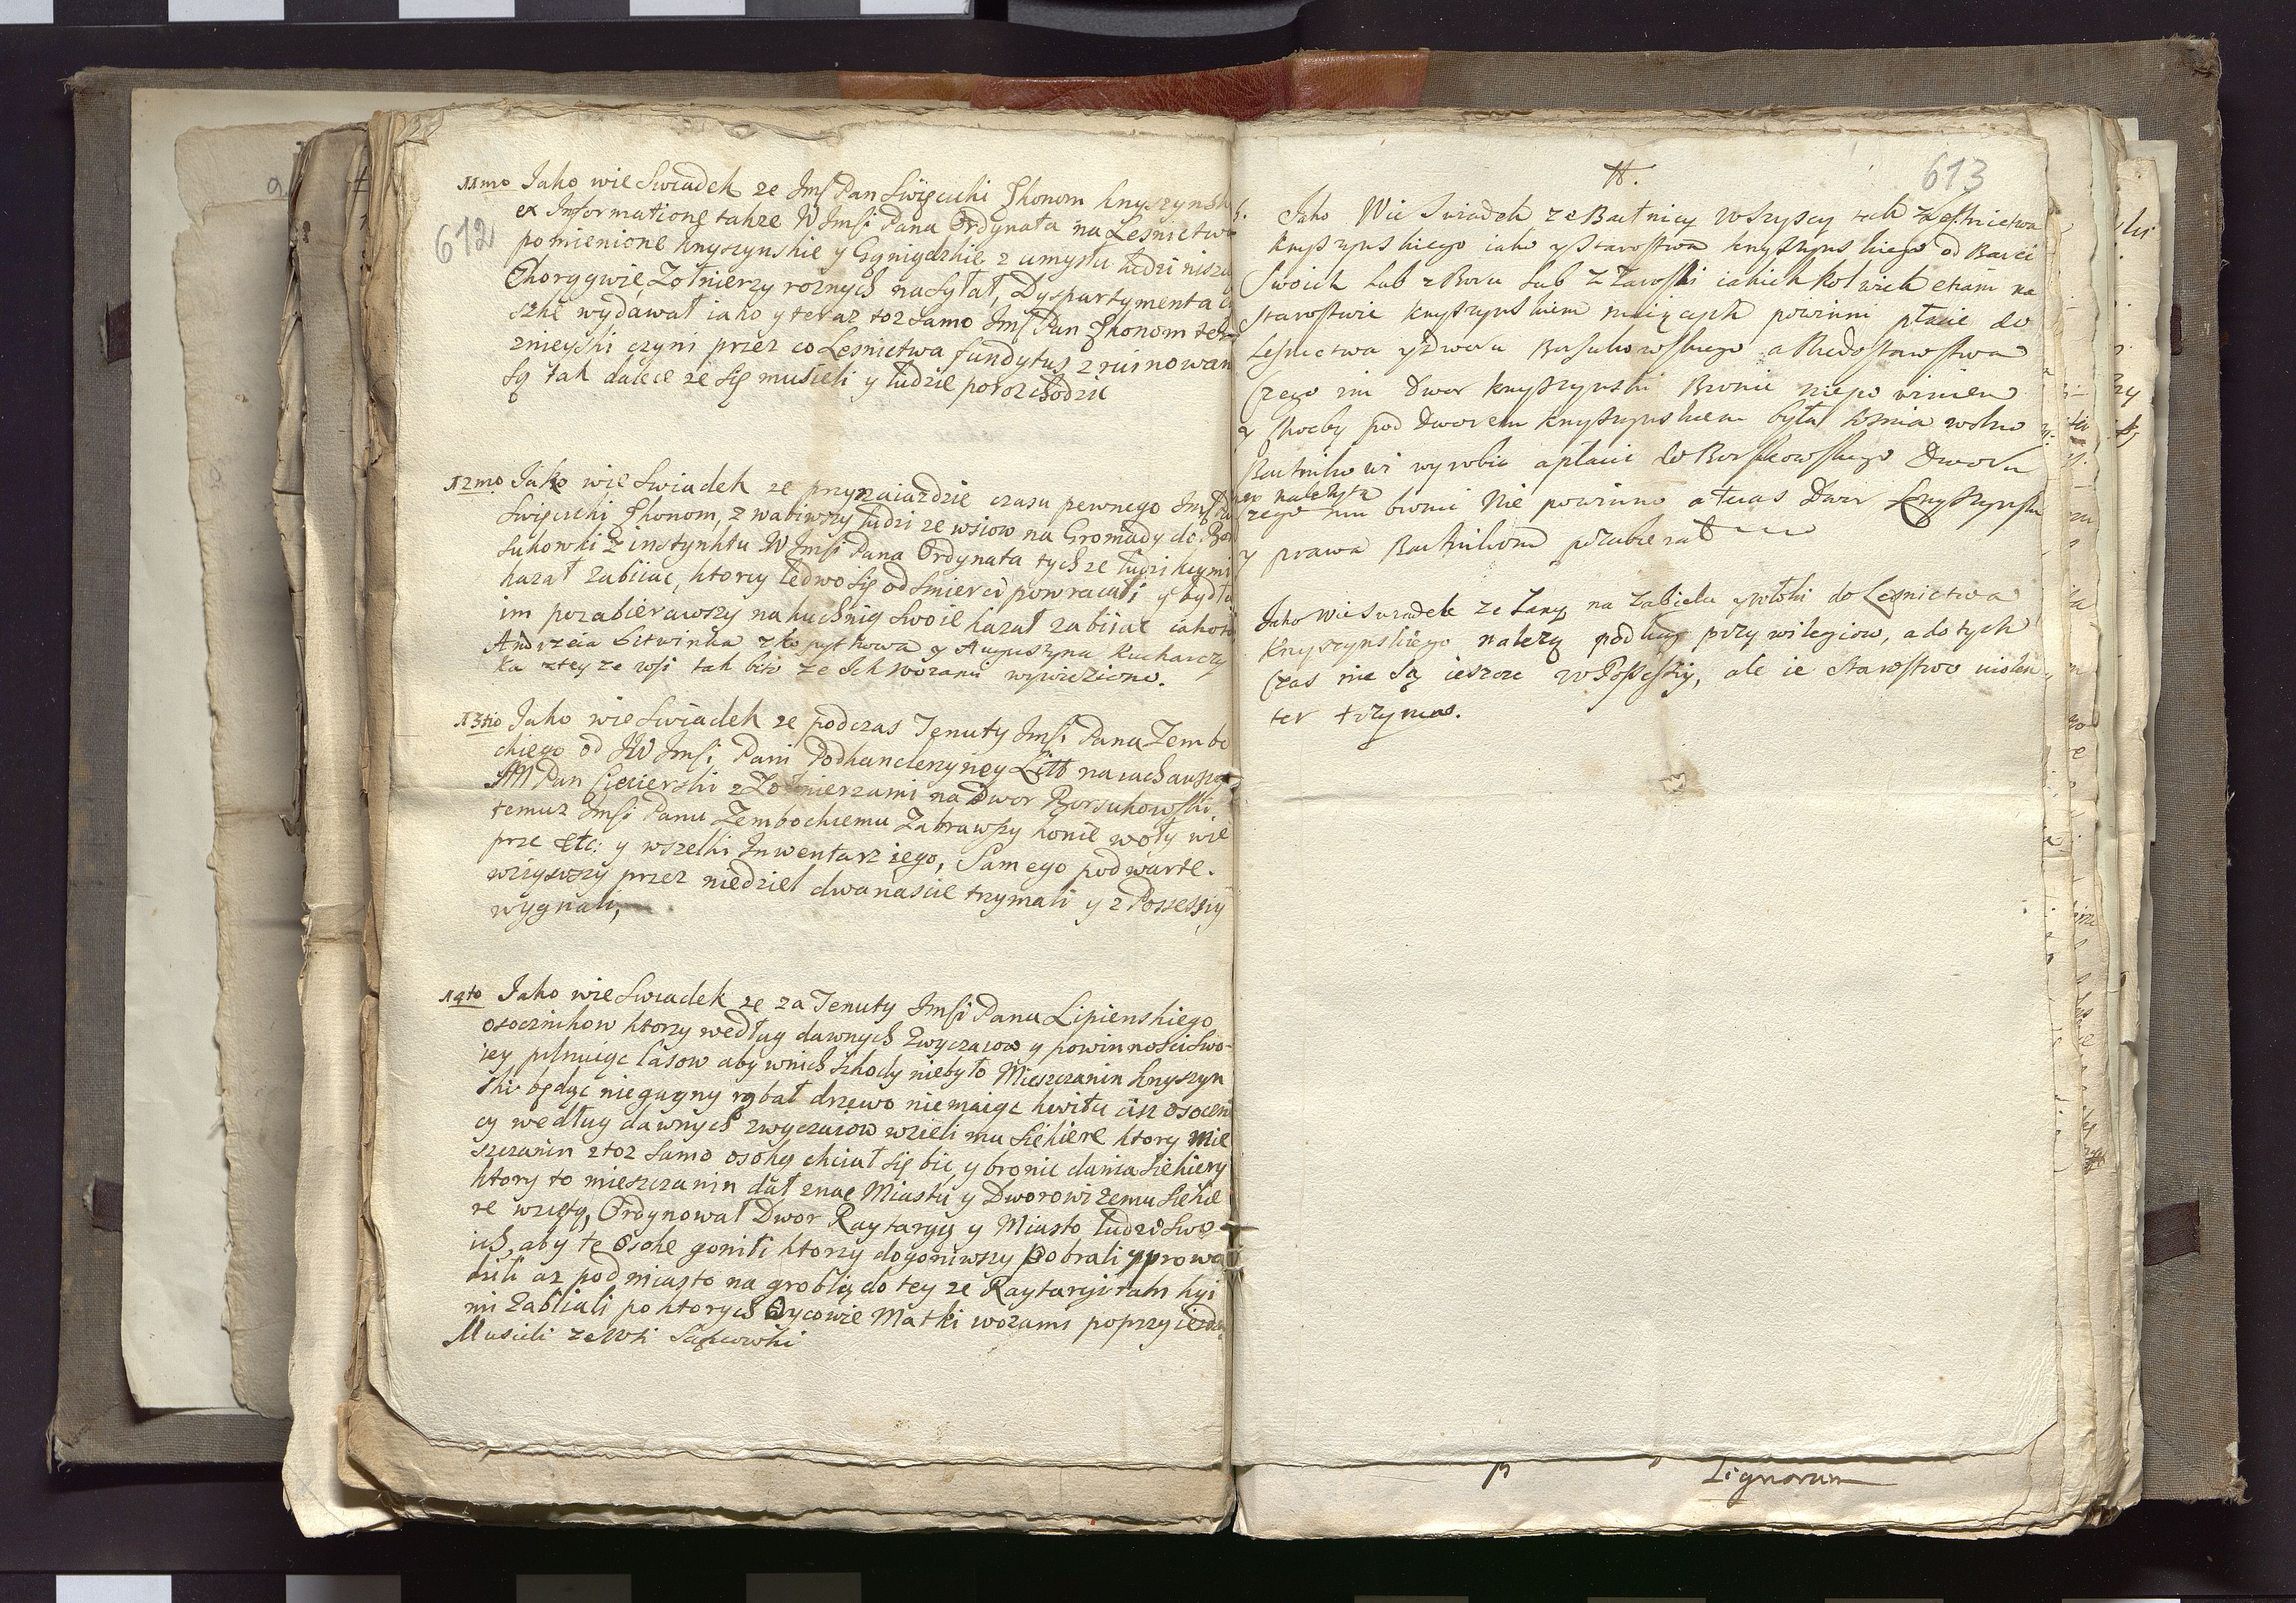 612
11mo Jako wie Swiadek ze Jmsc Pan Swięcicki Ekonom knyszynsk
ex Informatione takze W Jmsci Pana Ordynata na Lesnictwa
pomienione knyszynskie y Gyniądzkie z umysłu ludzi niszcz
Chorągwie, Zołnierzy roznych nasyłał, Dyspartymenta
szkie wydawał iako y teraz toz samo Jmsc Pan Ekonom tera
znieyski czyni przez co Lesnictwa funditus zruinowan
są tak dalece ze się musieli y ludzie porozchodzic
12mo Jako wie Swiadek ze przynaiazdzie czasu pewnego Jmsc
Swięcicki Ekonom, zwabiwszy ludzi ze wsiow na Gromady do Bor
sukowki z instynktu W Jmsci Pana Ordynata tychze ludzi kiymi
kazał zabiiac, ktorzy ledwo się od smierci powracali y bydła
im pozabierawszy na kuchnią swoie kazał zabiiac iakoto
Andrzeia Litwinka z kopytkowa y Augustyna Kucharczy
ka z tey ze wsi tak bito ze Ich wozami wywieziono.
13tio Jako wie Swiadek ze podczas Tenuty Jmsci Pana Zembo
ckiego od JW Jmsci Pani Podkanclerzyney Litt naiachawszy
JM Pan Ciecierski z Zołnierzami na Dwor Borsukowski,
temuz Jmsci Panu Zembockiemu Zabrawszy konie woły wie
prze etc: y wszelki Inwentarz iego, Samego pod warte.
wziąwszy przez niedziel dwanascie trzymali y z Possessiy
wygnali,
14to Jako wie Swiadek ze za Tenuty Jmsci Pana Lipienskiego
osocznikow ktorzy według dawnych Zwyczaiow y powinnosci Swo-
iey pilnuiąc lasow aby wnich szkody niebyło Mieszczanin knyszyn
ski będąc niegugny rąbał drzewo niemaiąc kwitu iisz osoczni
cy według dawnych zwyczaiow wzieli mu Siekiere ktory Mie
szczanin ztoz samo osoką chciał się bic, y bronic dania siekiery
ktory to mieszczanin dał znac Miastu y Dworowi zemu Siekie
re wzięto, Ordynował Dwor Raytaryą y Miasto ludzi Swo-
ich, aby te Osoke gonili ktorzy dogoniwszy Pobrali yprowa
dzili az pod miasto na groblą do tey ze Raytaryi tam kyi
mi Zabiiali po ktorych Oycowie Matki wozami poprzyiezdza
Musieli ze Wsi
613
Jako Wie Swiadek ze Bartnicy wszyscy tak z Lesnictwa
knyszynskiego iako y starostwa knyszynskiego od Barci
Swoich lub z Boru lub z Zarosli iakichkolwiek etiam na
Starostwie knyszynskiem maiących powinni płacic do
Lesnictwa y dworu Borsukowskiego a Niedostarostwa
Czego im Dwor knyszynski Bronic niepowinien
y choc by pod Dworem knyszynskiem była wolno
Bartnikowi wyrobic a płacic do Borsukowskiego Dworu
należyta
czego mu bronic Nie powinno a teraz Dwor knyszynski
y prawa Bartnikom pozabierał
Jako wie Swiadek ze Łany na Zabielu y włoki do Lesnictwa
Knyszynskiego nalezą podług przywilegiow, a do tych
Czas nie Są ieszcze w Possessiy, ale ie Starostwo violen
ter trzyma.
Lignorum